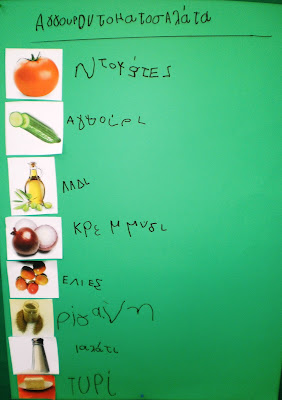 ΑγγουροντοματοσΑλάτα
ντομάτες
Αγγούρι
ΛΑΔΙ
ΚΡΕΜΜΥδι
ΕΛΙΕΣ
ρίγανη
ιαλάτι
ΤΥΡί